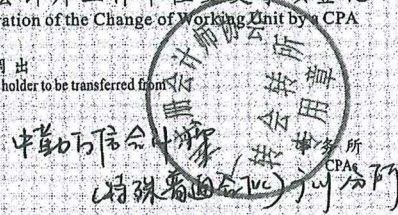 ration of the Change of Working Unit by a CPA
出
holder to be transferred from
中勤万信会计师
事务所
CPAs
(特殊普通合伙)
分所
师协会
转会转所
专用章